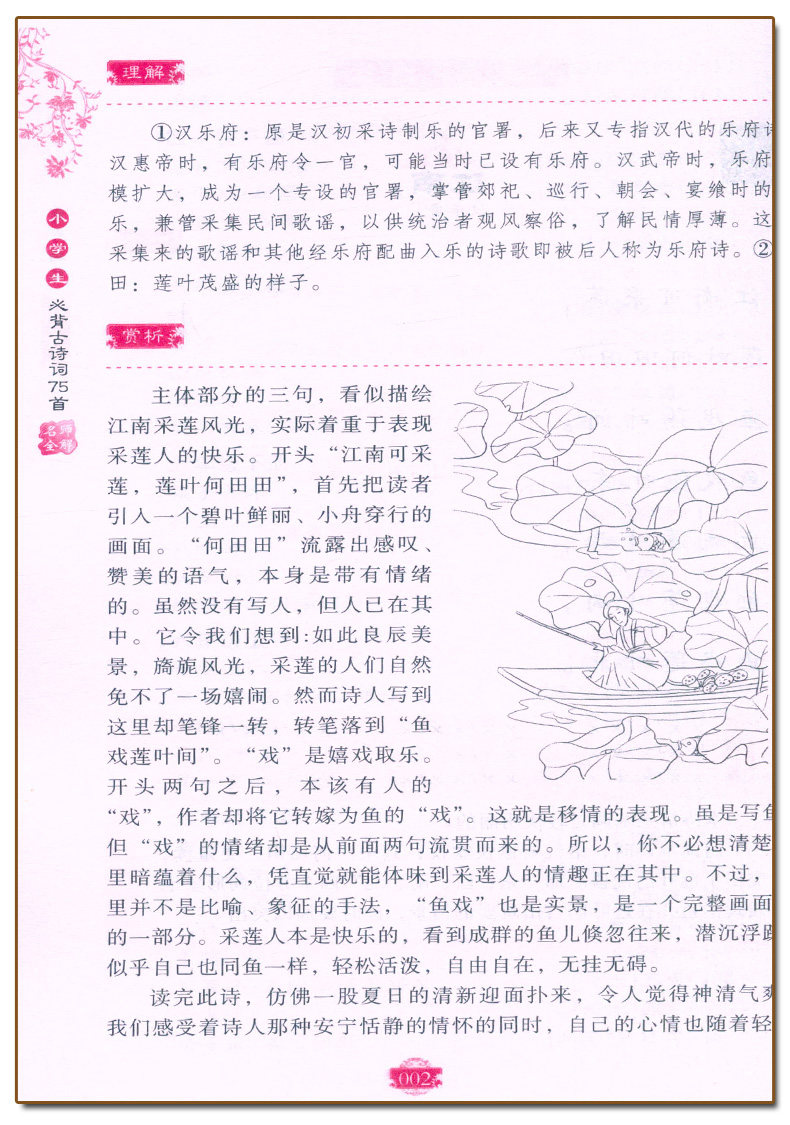 理解
①汉乐府：原是汉初采诗制乐的官署，后来又专指汉代的乐府
汉惠帝时，有乐府令一官，可能当时已设有乐府。汉武帝时，乐府
模扩大，成为一个专设的官署，掌管郊祀、巡行、朝会、宴飨时的
乐，兼管采集民间歌谣，以供统治者观风察俗，了解民情厚薄。这
采集来的歌谣和其他经乐府配曲入乐的诗歌即被后人称为乐府诗。②
田：莲叶茂盛的样子。
小学生必背古诗词75首
名师全解
赏析
主体部分的三句，看似描绘
江南采莲风光，实际着重于表现
采莲人的快乐。开头“江南可采
莲，莲叶何田田”，首先把读者
引入一个碧叶鲜丽、小舟穿行的
画面。“何田田”流露出感叹、
赞美的语气，本身是带有情绪
的。虽然没有写人，但人已在其
中。它令我们想到:如此良辰美
景，旖旎风光，采莲的人们自然
免不了一场嬉闹。然而诗人写到
这里却笔锋一转，转笔落到“鱼
戏莲叶间”。“戏”是嬉戏取乐。
开头两句之后，本该有人的
“戏”，作者却将它转嫁为鱼的“戏”。这就是移情的表现。虽是写鱼
但“戏”的情绪却是从前面两句流贯而来的。所以，你不必想清楚
里暗蕴着什么，凭直觉就能体味到采莲人的情趣正在其中。不过，
里并不是比喻、象征的手法，“鱼戏”也是实景，是一个完整画面
的一部分。采莲人本是快乐的，看到成群的鱼儿倏忽往来，潜沉浮跃
似乎自己也同鱼一样，轻松活泼，自由自在，无挂无碍。
读完此诗，仿佛一股夏日的清新迎面扑来，令人觉得神清气爽
我们感受着诗人那种安宁恬静的情怀的同时，自己的心情也随着轻
002